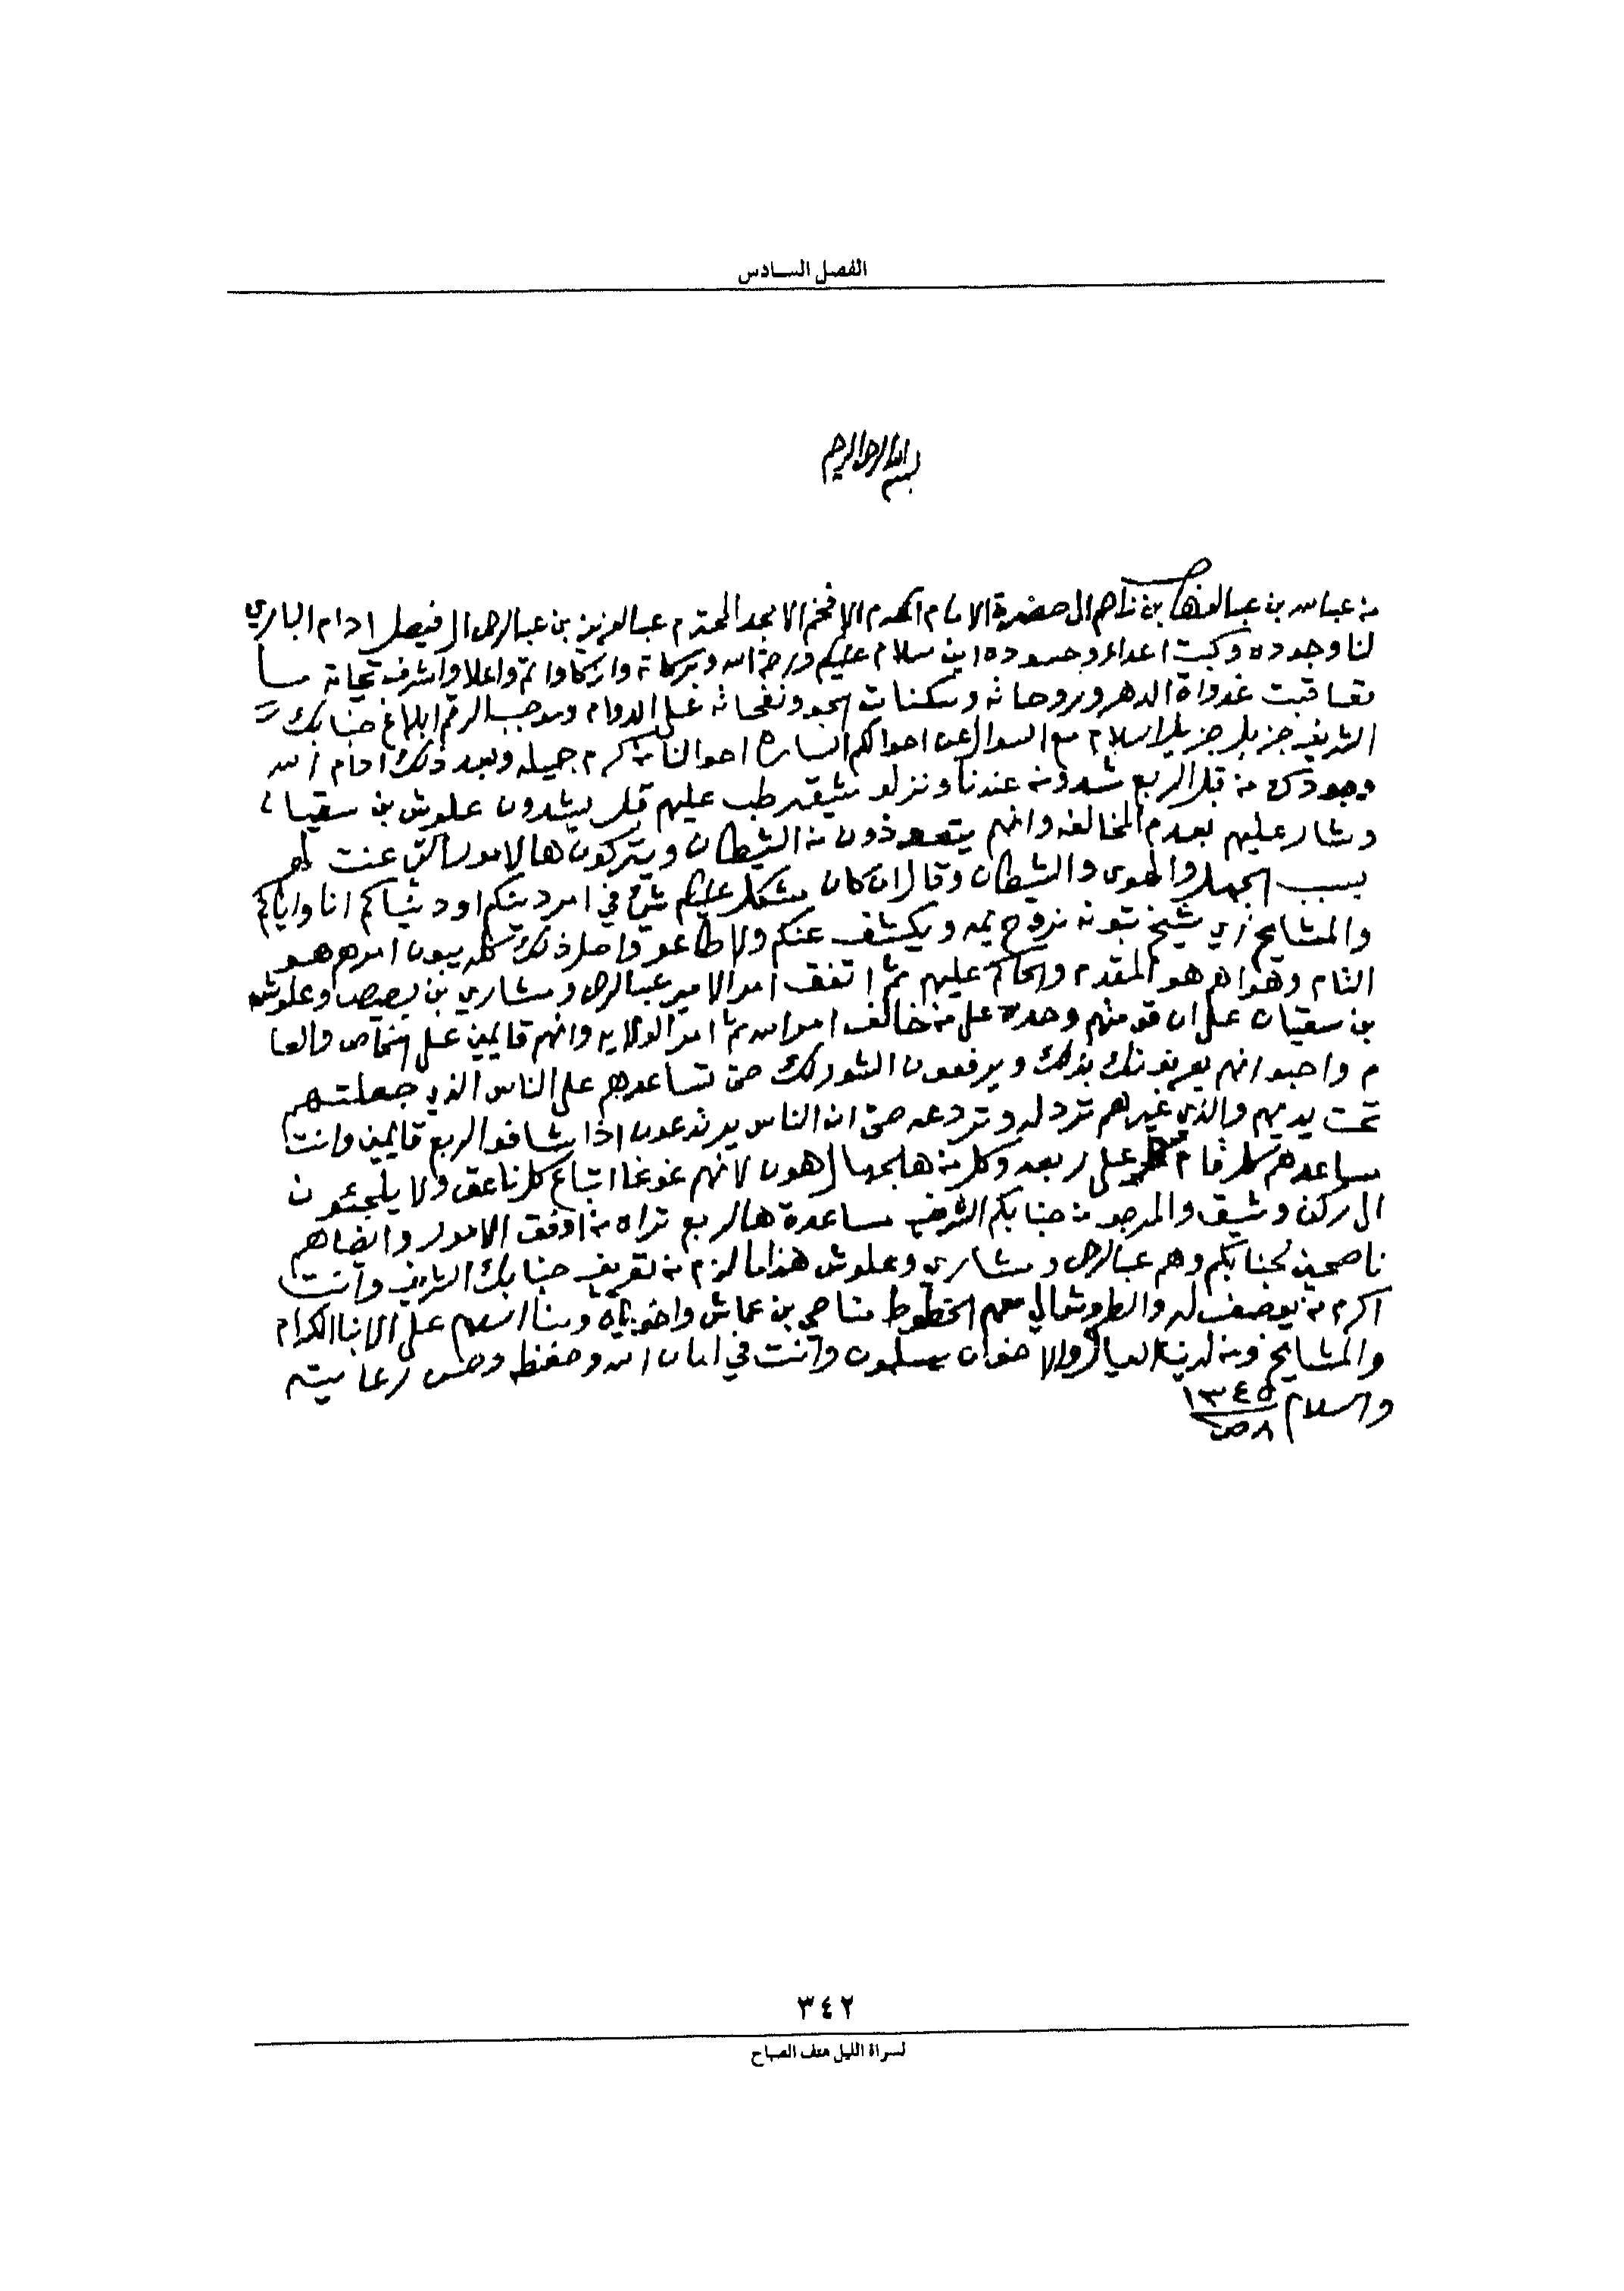 الفصل السادس
بسم الله الرحمن الرحيم
من عبدالله بن عبدالوهاب بن زاحم الى حضرة الامام المكرم الافخم الامجد المحترم عبدالعزيز بن عبدالرحمن ال فيصل ادام الباري
لنا وجوده وكبت اعداءه وحسوده امين سلام عليكم ورحمة الله وبركاته وازكا واتم واعلا واشرف تحياته ما
تعاقبت غدواة الدهر وروحاته وسكنات الجو ونفحاته على الدوام وموجب الرقم ابلاغ جنابك
الشريف جزيل جزيل السلام مع السوال عن احوالكم السارة احوالنا من كرم جميله وبعد ذلك ادام الله
وجودك من قبل الربع شدو من عندنا ونزلو طب عليهم قبل يشدون علوش بن سقيان
وشار عليهم بعدم المخالفه وانهم يتعوذون من الشيطان ويتركون هالامور التي عنت لهم
بسبب الجهل والهوى والشيطان وقال ان كان مشكل عليكم شي في امر دينكم او دنياكم انا واياكم
والمشايخ اي شيخ تبونه نروح يمه ويكشف عنكم ولا طاعو واصل ذلك كله يبون امرهم هو
التام وهواهم هو المقدم والحاكم عليهم ثم اتفق امر الامير عبدالرحمن ومشاري بن بصيص وعلوش
بن سقيان على ان قومتهم وحدة على من خالف امر الله ثم امر الولايه وانهم قايمين على الخاص والعا
م واحبو انهم يعرفونك بذلك ويرفعون الشور لك حتى تساعدهم على الناس الذي جعلتهم
تحت يديهم والذي غيرهم ترد له وتردعه حتى ان الناس يرتدعون اذا شافو الربع قايمين وانت
مساعدهم كل قام على ربعه وكل من هالجهال هون لانهم غوغا اتباع كل ناعق ولا يلجئون
الى ركن وشيق والمرجو من جنابكم الشريف مساعدة هالربع تراه من اوفق الامور وايضا هم
ناصحين لجنابكم وهم عبدالرحمن ومشاري وعلوش هذا ما لزم من تعريف جنابك الشريف وانت
اكرم من يوصف له والطروش الي معهم الخطوط مناحي بن عماش واخوياه ومنا السلام على الابنا الكرام
والمشايخ ومن لدينا العيال والاخوان يسلمون وانت في امان الله وحفظه وحسن رعايته
والسلام ١٣٤٥
٨ ص
٣٤٢
لسراة الليل هتف الصباح